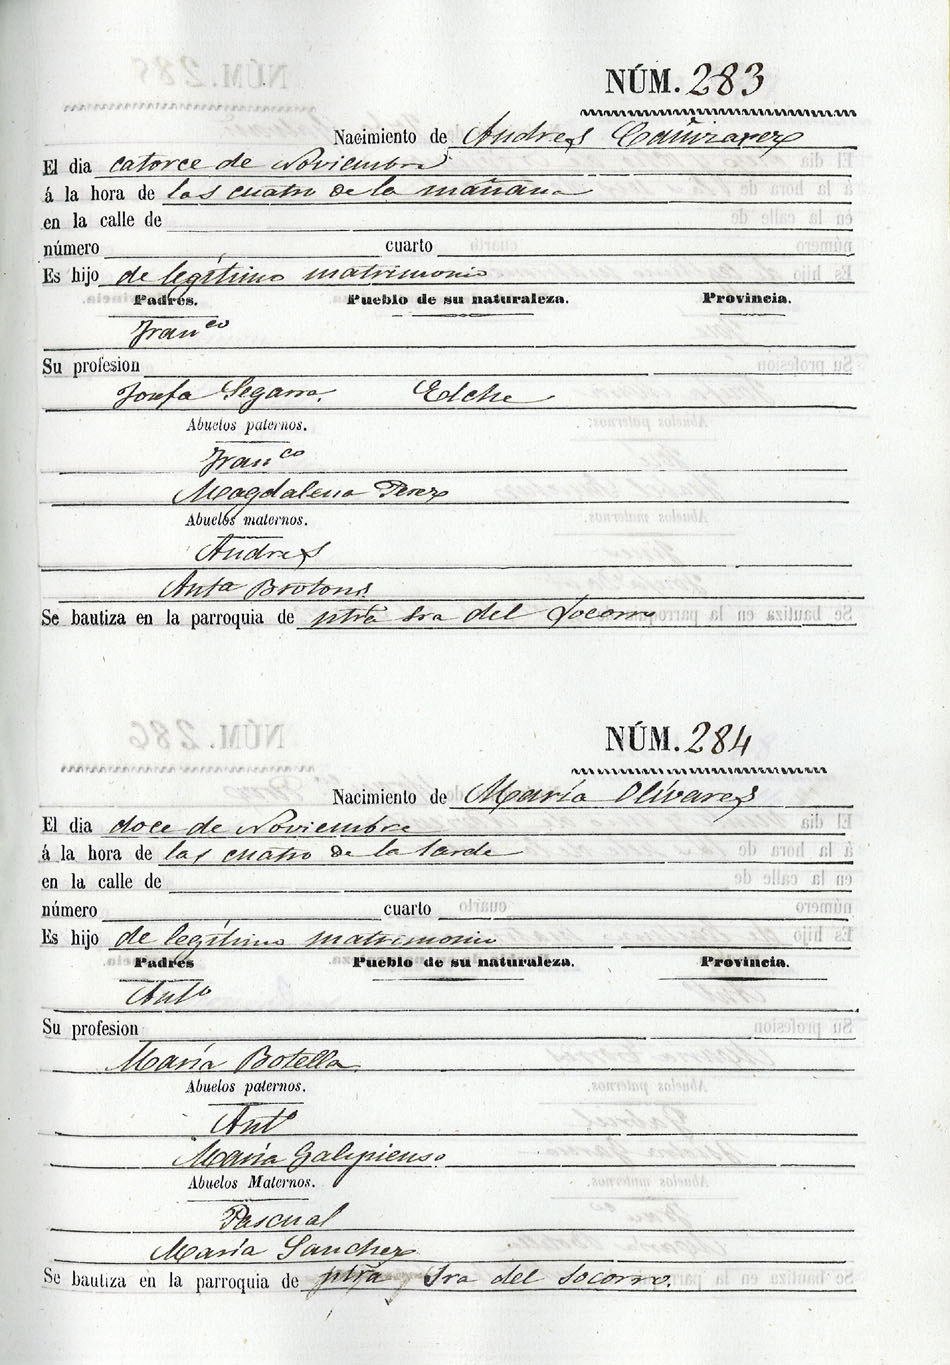 NÚM. 283
Nacimiento de Andres Cañizarez
El dia catorce de Noviembre
á la hora de las cuatro de la mañana
en la calle de
número cuarto
Es hijo de legítimo matrimonio
Padres. Pueblo de su naturaleza. Provincia.
Franco
Su profesion
Josefa Segarra. Elche
Abuelos paternos.
Franco
Magdalena Perez
Abuelos maternos.
Andres
Anta Brotons
Se bautiza en la parroquia de ntra Sra del Socorro
NÚM. 284
Nacimiento de María Olivares
El dia doce de Noviembre
á la hora de las cuatro de la tarde
en la calle de
número cuarto
Es hijo de legítimo matrimonio
Padres Pueblo de su naturaleza. Provincia.
Anto
Su profesion
María Botella
Abuelos paternos.
Anto
María Galipienso
Abuelos Maternos.
Pascual
María Sanchez
Se bautiza en la parroquia de ntra Sra del Socorro.